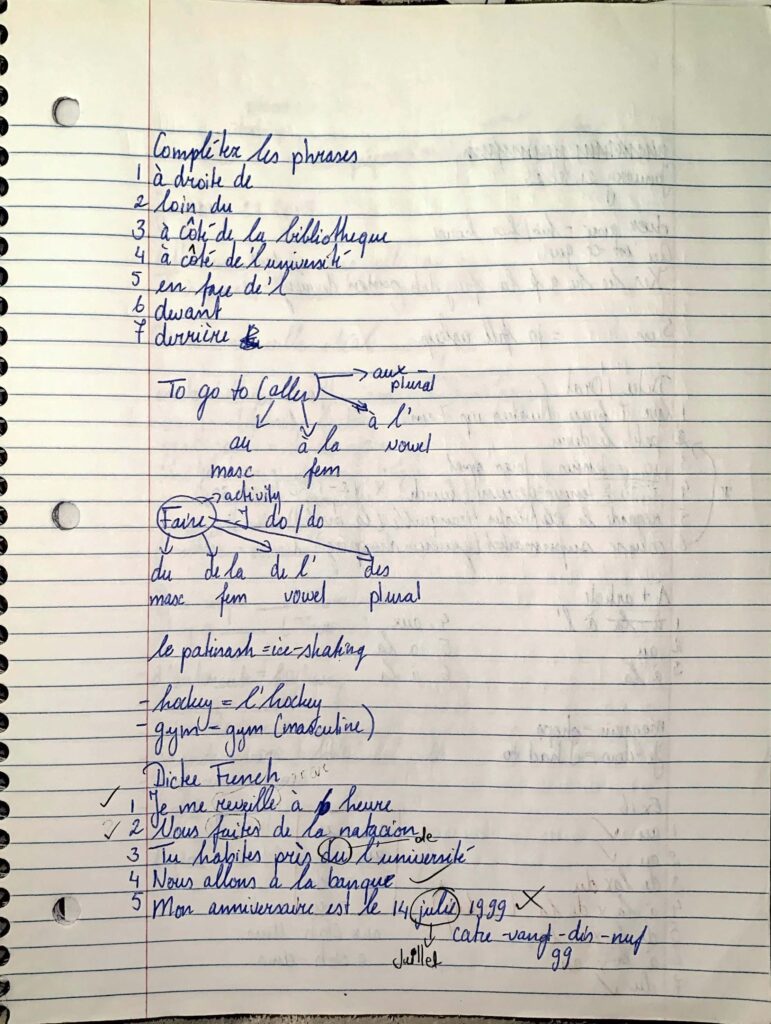 Complétez les phrases
1 à droite de
2 loin du
3 à côté de la bibliotheque
4 à côté de l'université
5 en face de'l
6 devant
7 derrière
To go to (aller) → aux - plural
à l'
au à la vowel
masc fem
→ activity
Faire - I do / do
du de la de l' des
masc fem vowel plural
le patinash = ice-skating
- hockey = l'hockey
- gym = gym (masculine)
Dictee French
✓ 1 Je me reveille à 6 heure
✓ 2 Vous faites de la natacion
3 Tu habites près du l'université de
4 Nous allons à la banque ✓
5 Mon anniversaire est le 14 julie 1999 X
Juillet catre-vangt-dis-nuf
99